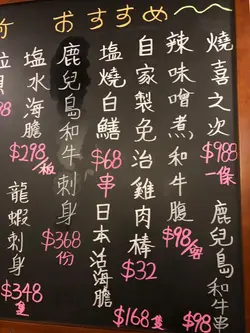 おすすめ
燒喜之次
$988
一條
鹿兒島和牛串
$98
辣味噌煮和牛腹
$98/客
自家製免治雞肉棒
$32
塩燒白鱔
$68
串
日本活海膽
$168隻
鹿兒島和牛刺身
$368
份
塩水海膽
$298/板
龍蝦刺身
$348
隻